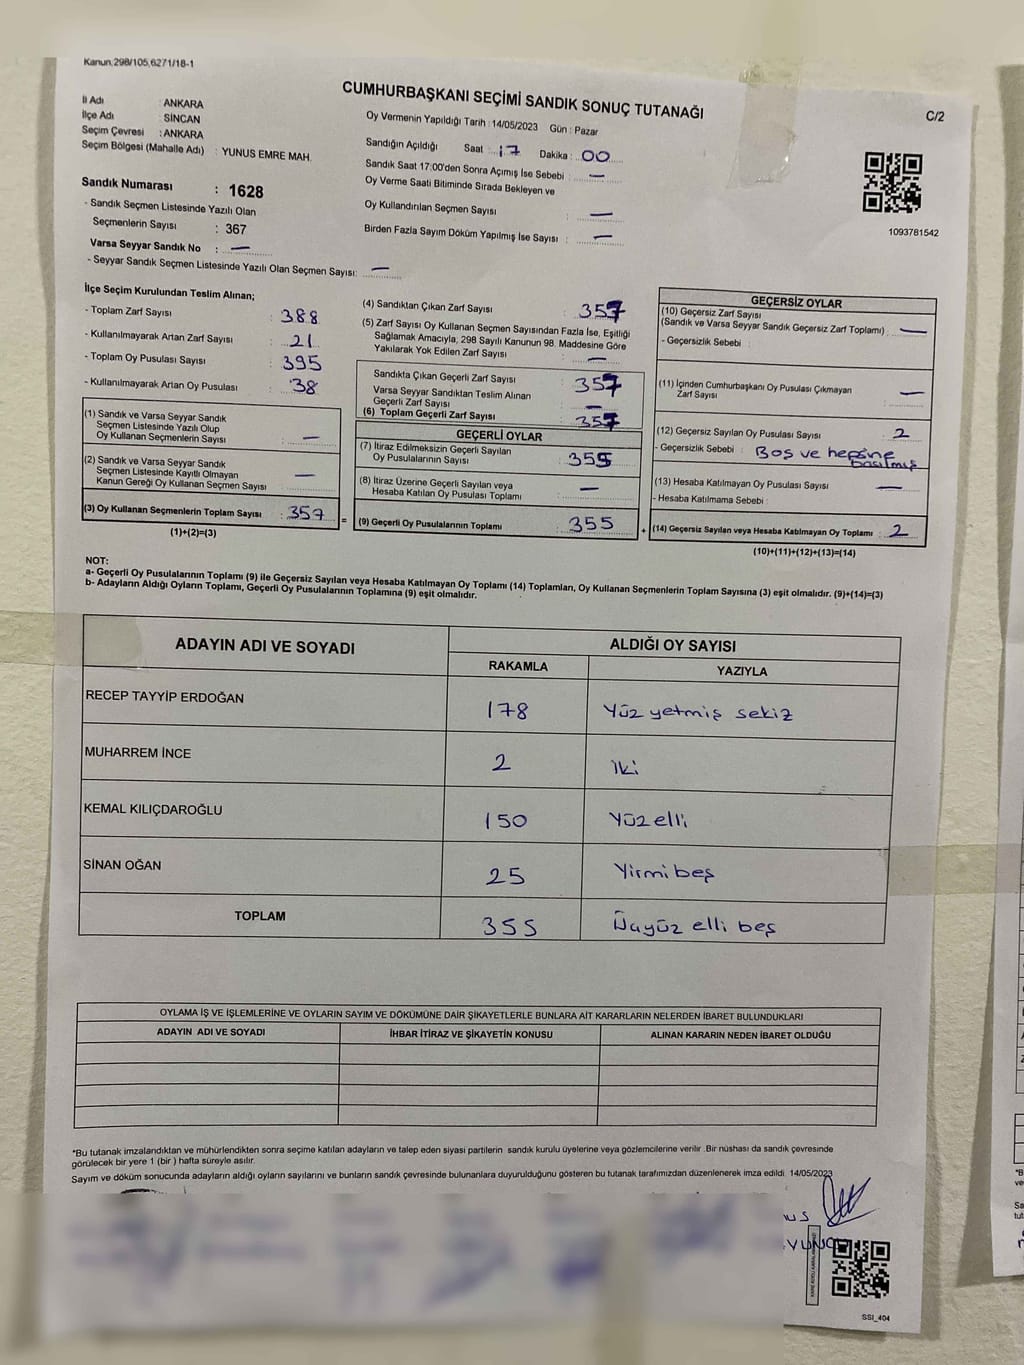 Kanun.298/105,6271/18-1
CUMHURBAŞKANI SEÇİMİ SANDIK SONUÇ TUTANAĞI
C/2
İl Adı : ANKARA
İlçe Adı : SİNCAN
Seçim Çevresi : ANKARA
Seçim Bölgesi (Mahalle Adı) : YUNUS EMRE MAH.
Sandık Numarası : 1628
- Sandık Seçmen Listesinde Yazılı Olan
Seçmenlerin Sayısı : 367
Varsa Seyyar Sandık No : —
- Seyyar Sandık Seçmen Listesinde Yazılı Olan Seçmen Sayısı: —
Oy Vermenin Yapıldığı Tarih : 14/05/2023 Gün : Pazar
Sandığın Açıldığı Saat : 17 Dakika : 00
Sandık Saat 17:00'den Sonra Açımış İse Sebebi : —
Oy Verme Saati Bitiminde Sırada Bekleyen ve
Oy Kullandırılan Seçmen Sayısı : —
Birden Fazla Sayım Döküm Yapılmış İse Sayısı : —
1093781542
İlçe Seçim Kurulundan Teslim Alınan;
- Toplam Zarf Sayısı : 388
- Kullanılmayarak Artan Zarf Sayısı : 21
- Toplam Oy Pusulası Sayısı : 395
- Kullanılmayarak Artan Oy Pusulası : 38
(1) Sandık ve Varsa Seyyar Sandık
Seçmen Listesinde Yazılı Olup
Oy Kullanan Seçmenlerin Sayısı : —
(2) Sandık ve Varsa Seyyar Sandık
Seçmen Listesinde Kayıtlı Olmayan
Kanun Gereği Oy Kullanan Seçmen Sayısı : —
(3) Oy Kullanan Seçmenlerin Toplam Sayısı : 357
(1)+(2)=(3)
=
(4) Sandıktan Çıkan Zarf Sayısı : 357
(5) Zarf Sayısı Oy Kullanan Seçmen Sayısından Fazla İse, Eşitliği
Sağlamak Amacıyla, 298 Sayılı Kanunun 98. Maddesine Göre
Yakılarak Yok Edilen Zarf Sayısı : —
Sandıkta Çıkan Geçerli Zarf Sayısı : 357
Varsa Seyyar Sandıktan Teslim Alınan
Geçerli Zarf Sayısı : —
(6) Toplam Geçerli Zarf Sayısı : 357
GEÇERLİ OYLAR
(7) İtiraz Edilmeksizin Geçerli Sayılan
Oy Pusulalarının Sayısı : 355
(8) İtiraz Üzerine Geçerli Sayılan veya
Hesaba Katılan Oy Pusulası Toplamı : —
(9) Geçerli Oy Pusulalarının Toplamı : 355
+
GEÇERSİZ OYLAR
(10) Geçersiz Zarf Sayısı
(Sandık ve Varsa Seyyar Sandık Geçersiz Zarf Toplamı) : —
- Geçersizlik Sebebi :
(11) İçinden Cumhurbaşkanı Oy Pusulası Çıkmayan
Zarf Sayısı : —
(12) Geçersiz Sayılan Oy Pusulası Sayısı : 2
- Geçersizlik Sebebi : Boş ve hepsine
basılmış
(13) Hesaba Katılmayan Oy Pusulası Sayısı : —
- Hesaba Katılmama Sebebi :
(14) Geçersiz Sayılan veya Hesaba Katılmayan Oy Toplamı : 2
(10)+(11)+(12)+(13)=(14)
NOT:
a- Geçerli Oy Pusulalarının Toplamı (9) ile Geçersiz Sayılan veya Hesaba Katılmayan Oy Toplamı (14) Toplamları, Oy Kullanan Seçmenlerin Toplam Sayısına (3) eşit olmalıdır. (9)+(14)=(3)
b- Adayların Aldığı Oyların Toplamı, Geçerli Oy Pusulalarının Toplamına (9) eşit olmalıdır.
ADAYIN ADI VE SOYADI ALDIĞI OY SAYISI
RAKAMLA YAZIYLA
RECEP TAYYİP ERDOĞAN 178 Yüz yetmiş sekiz
MUHARREM İNCE 2 iki
KEMAL KILIÇDAROĞLU 150 Yüz elli
SİNAN OĞAN 25 Yirmi beş
TOPLAM 355 Üçyüz elli beş
OYLAMA İŞ VE İŞLEMLERİNE VE OYLARIN SAYIM VE DÖKÜMÜNE DAİR ŞİKAYETLERLE BUNLARA AİT KARARLARIN NELERDEN İBARET BULUNDUKLARI
ADAYIN ADI VE SOYADI İHBAR İTİRAZ VE ŞİKAYETİN KONUSU ALINAN KARARIN NEDEN İBARET OLDUĞU
*Bu tutanak imzalandıktan ve mühürlendikten sonra seçime katılan adayların ve talep eden siyasi partilerin sandık kurulu üyelerine veya gözlemcilerine verilir .Bir nüshası da sandık çevresinde
görülecek bir yere 1 (bir ) hafta süreyle asılır.
Sayım ve döküm sonucunda adayların aldığı oyların sayılarını ve bunların sandık çevresinde bulunanlara duyurulduğunu gösteren bu tutanak tarafımızdan düzenlenerek imza edildi. 14/05/2023
SSI_404